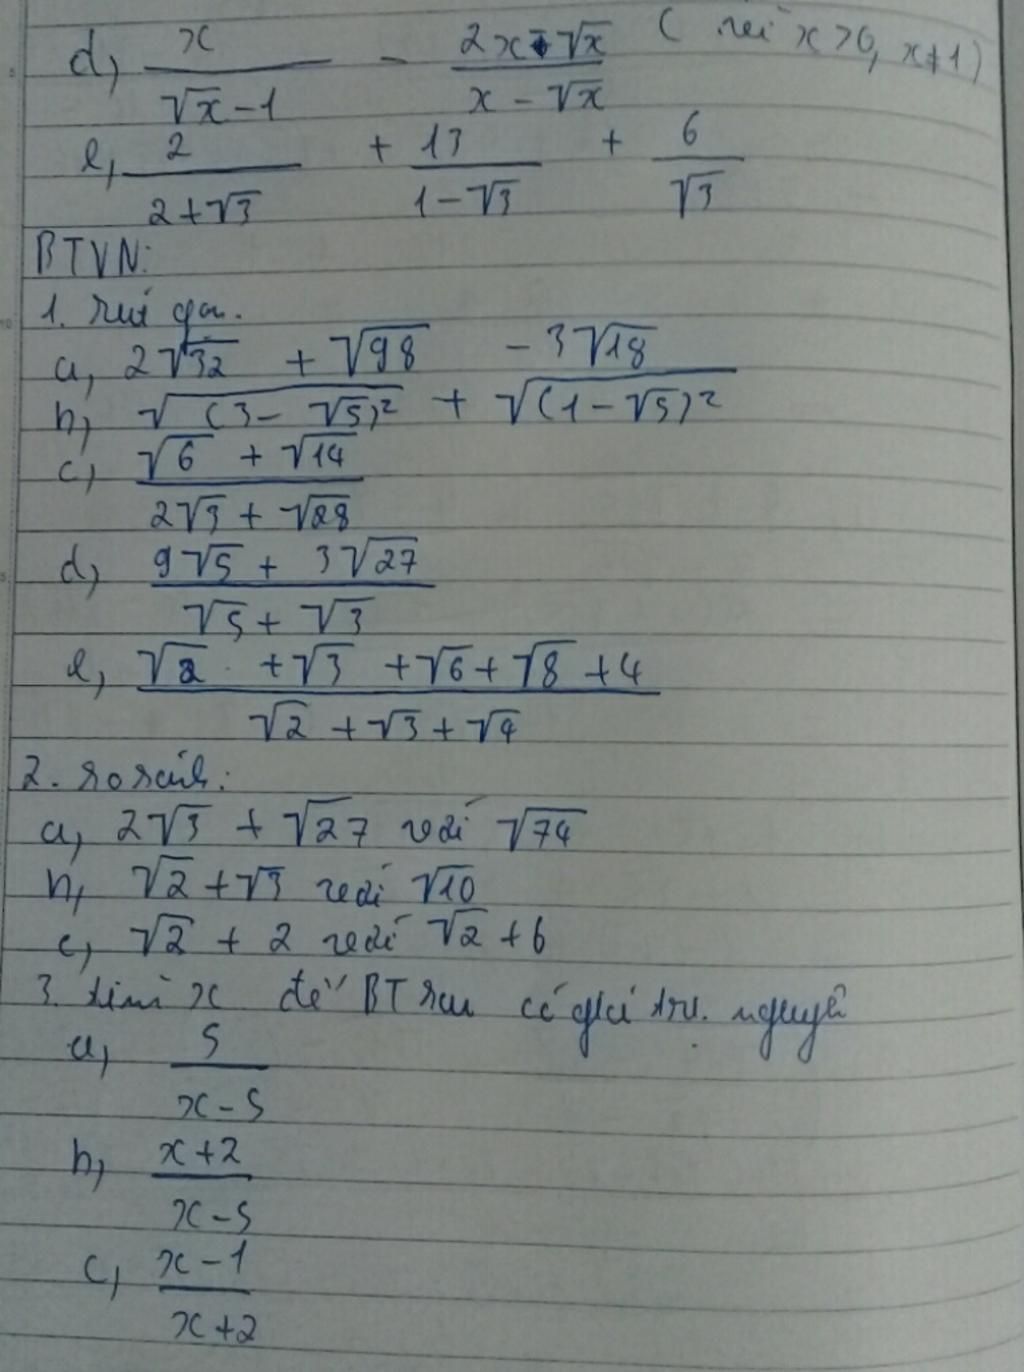 d, x/(√x - 1) - (2x - √x)/(x - √x) ( với x > 0, x ≠ 1)
e, 2/(2 + √3) + 13/(1 - √3) + 6/√3
BTVN:
1. Rút gọn.
a, 2√32 + √98 - 3√18
b, √(3 - √5)² + √(1 - √5)²
c, (√6 + √14)/(2√3 + √28)
d, (9√5 + 3√27)/(√5 + √3)
e, (√2 + √3 + √6 + √8 + 4)/(√2 + √3 + √4)
2. so sánh:
a, 2√3 + √27 với √74
b, √2 + √3 với √10
c, √2 + 2 với √2 + 6
3. tìm x để BT sau có giá trị nguyên
a, 5/(x - 5)
b, (x + 2)/(x - 5)
c, (x - 1)/(x + 2)